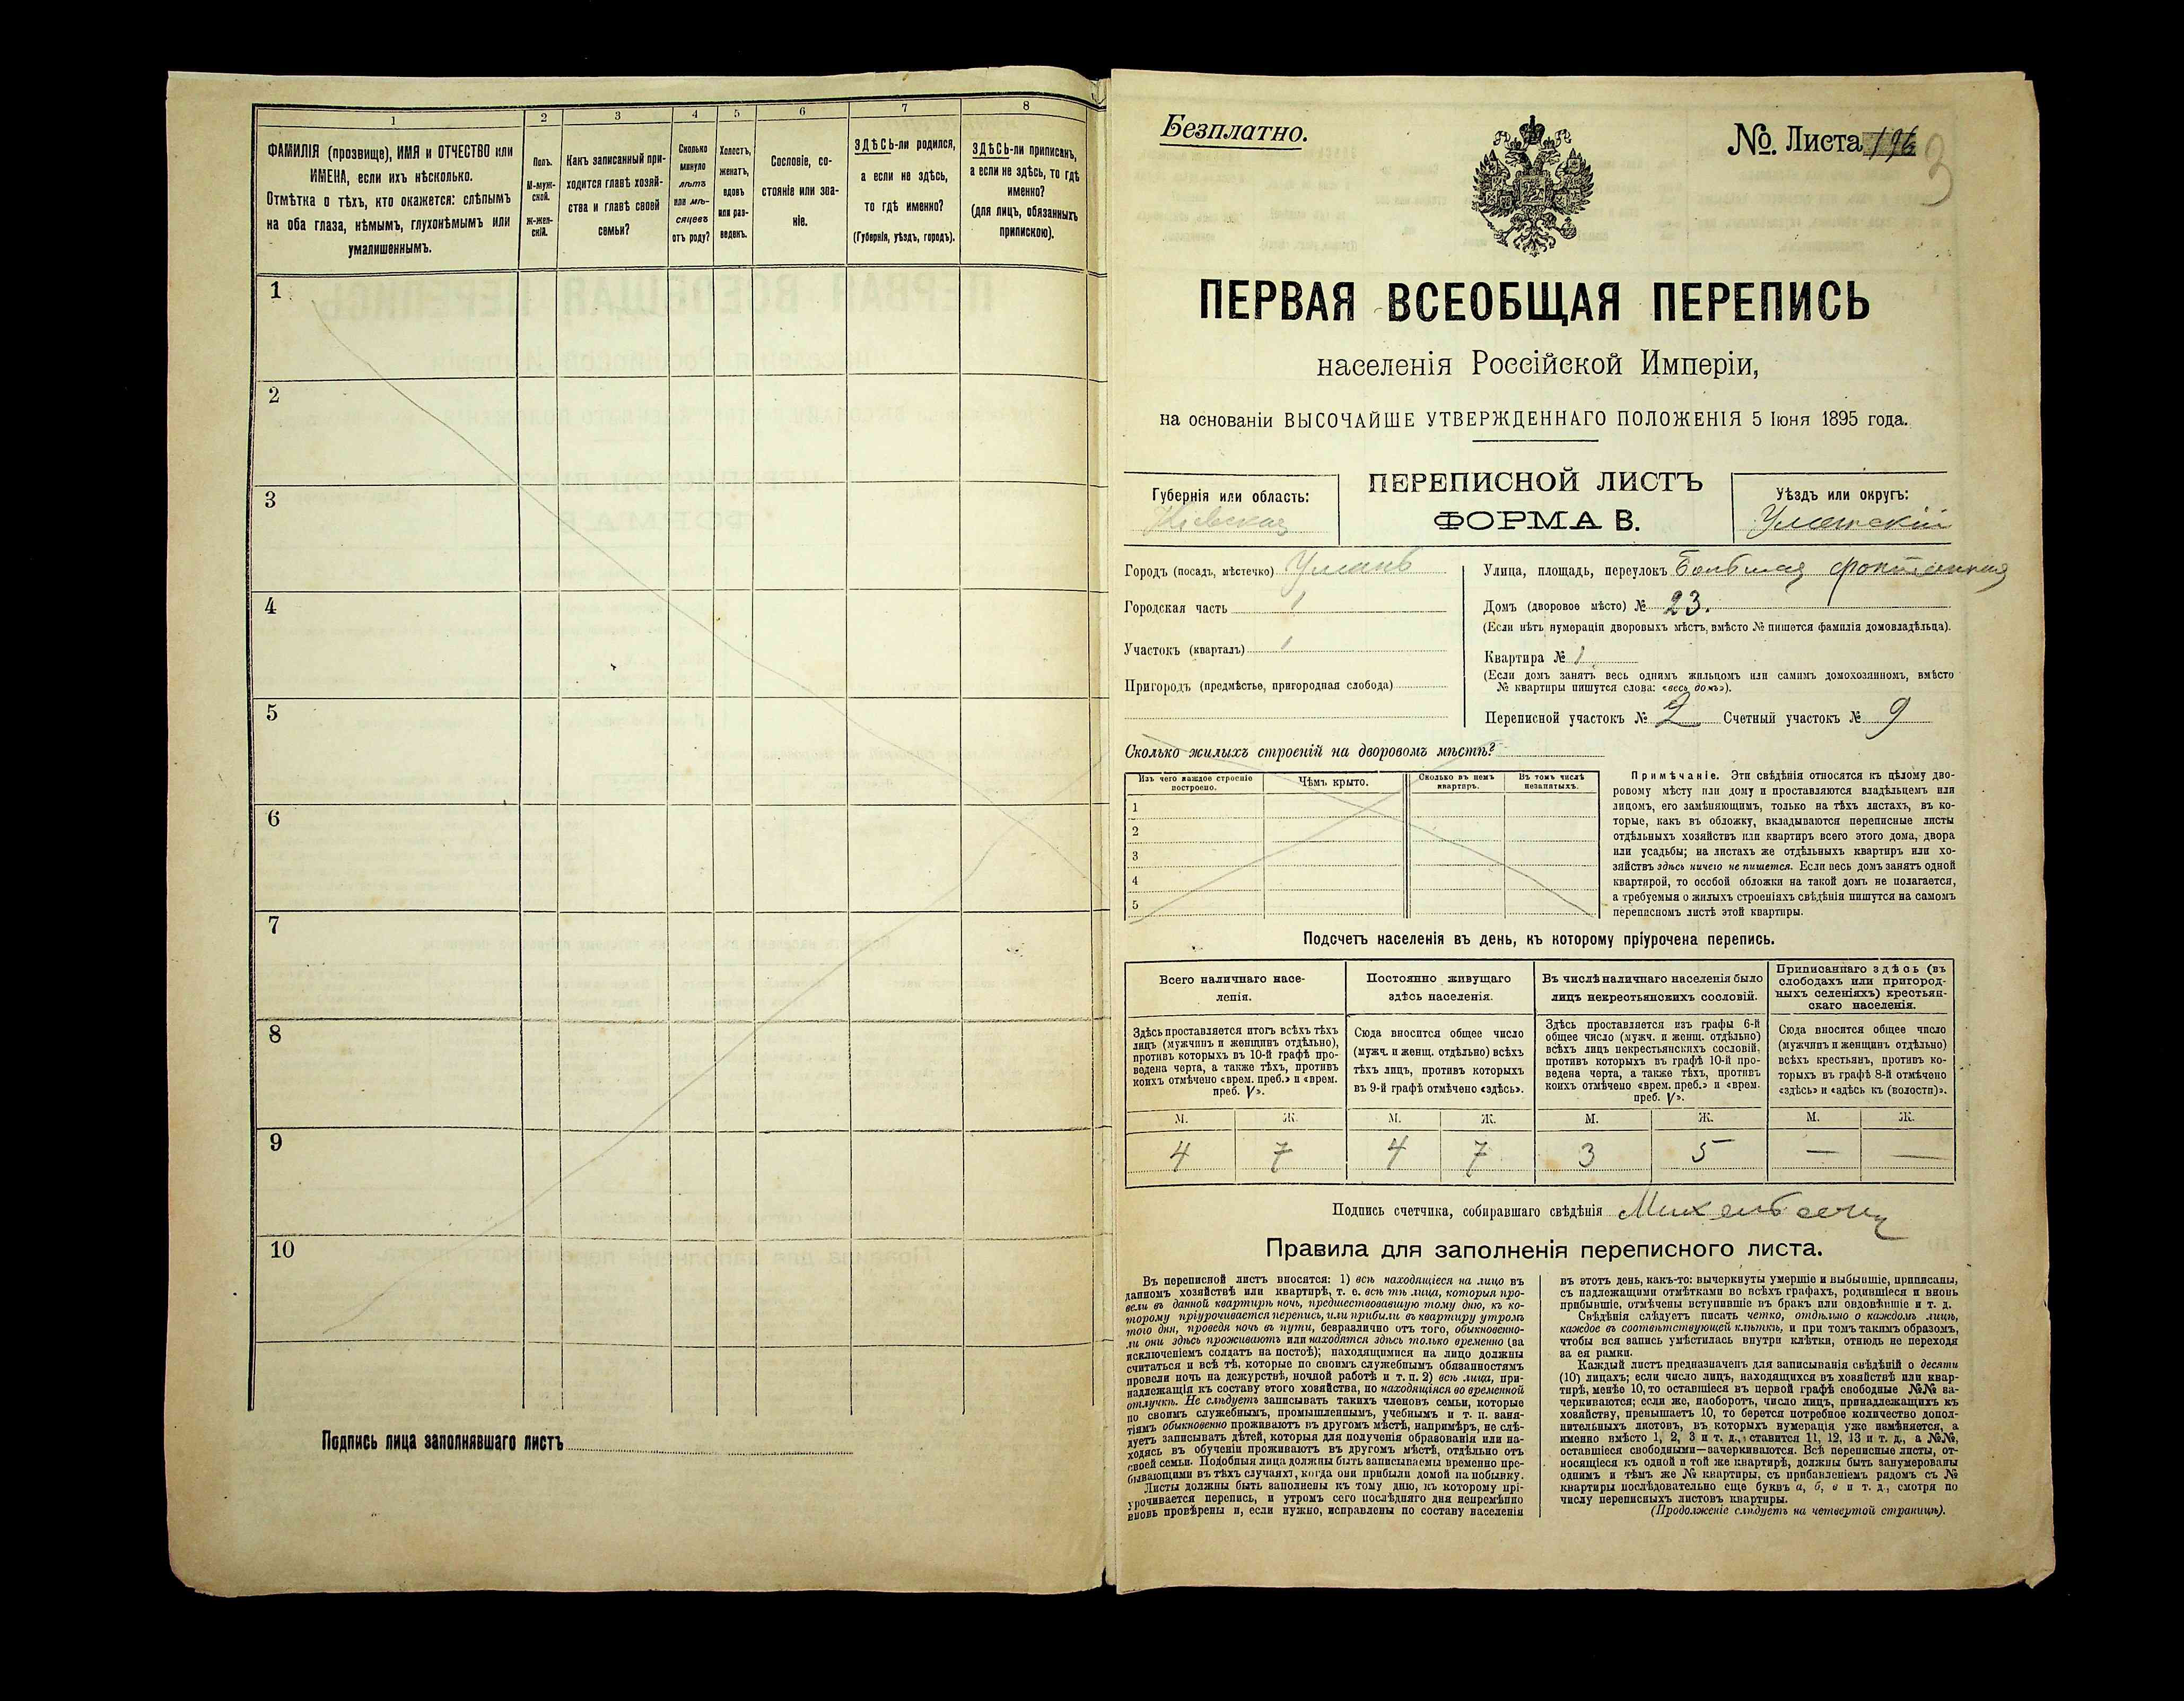 1
2
3
4
5
6
7
8
ФАМИЛІЯ (прозвище), ИМЯ и ОТЧЕСТВО или
ИМЕНА, если ихъ нѣсколько.
Отмѣтка о тѣхъ, кто окажется: слѣпымъ
на оба глаза, нѣмымъ, глухонѣмымъ или
умалишеннымъ.
Полъ.
М-муж-
ской.
Ж-жен-
скій.
Какъ записанный при-
ходится главѣ хозяй-
ства и главѣ своей
семьи?
Сколько
минуло
лѣтъ
или мѣ-
сяцевъ
отъ роду?
Холостъ,
женатъ,
вдовъ
или раз-
веденъ.
Сословіе, со-
стояніе или зва-
ніе.
ЗДѢСЬ-ли родился,
а если не здѣсь,
то гдѣ именно?
(Губернія, уѣздъ, городъ).
ЗДѢСЬ-ли приписанъ,
а если не здѣсь, то гдѣ
именно?
(для лицъ, обязанныхъ
припискою).
1
2
3
4
5
6
7
8
9
10
Подпись лица заполнявшаго листъ
Безплатно.
№. Листа 196
3
ПЕРВАЯ ВСЕОБЩАЯ ПЕРЕПИСЬ
населенія Россійской Имперіи,
на основаніи ВЫСОЧАЙШЕ УТВЕРЖДЕННАГО ПОЛОЖЕНІЯ 5 Іюня 1895 года.
Губернія или область:
Кіевская
ПЕРЕПИСНОЙ ЛИСТЪ
ФОРМА В.
Уѣздъ или округъ:
Уманскій
Городъ (посадъ, мѣстечко) Умань
Городская часть 1
Участокъ (кварталъ) 1
Пригородъ (предмѣстье, пригородная слобода)
Улица, площадь, переулокъ Большая Фонтанная
Домъ (дворовое мѣсто) № 23.
(Если нѣтъ нумераціи дворовыхъ мѣстъ, вмѣсто № пишется фамилія домовладѣльца).
Квартира № 1
(Если домъ занятъ весь однимъ жильцомъ или самимъ домохозяиномъ, вмѣсто
№ квартиры пишутся слова: «весь домъ»).
Переписной участокъ № 2 Счетный участокъ № 9
Сколько жилыхъ строеній на дворовомъ мѣстѣ?
Изъ чего каждое строеніе
построено.
Чѣмъ крыто.
Сколько въ немъ
квартиръ.
Въ томъ числѣ
незанятыхъ.
1
2
3
4
5
Примѣчаніе. Эти свѣдѣнія относятся къ цѣлому дво-
ровому мѣсту или дому и проставляются владѣльцемъ или
лицомъ, его замѣняющимъ, только на тѣхъ листахъ, въ ко-
торые, какъ въ обложку, вкладываются переписные листы
отдѣльныхъ хозяйствъ или квартиръ всего этого дома, двора
или усадьбы; на листахъ же отдѣльныхъ квартиръ или хо-
зяйствъ здѣсь ничего не пишется. Если весь домъ занятъ одной
квартирой, то особой обложки на такой домъ не полагается,
а требуемыя о жилыхъ строеніяхъ свѣдѣнія пишутся на самомъ
переписномъ листѣ этой квартиры.
Подсчетъ населенія въ день, къ которому пріурочена перепись.
Всего наличнаго насе-
ленія.
Постоянно живущаго
здѣсь населенія.
Въ числѣ наличнаго населенія было
лицъ некрестьянскихъ сословій.
Приписаннаго здѣсь (въ
слободахъ или пригород-
ныхъ селеніяхъ) крестьян-
скаго населенія.
Здѣсь проставляется итогъ всѣхъ тѣхъ
лицъ (мужчинъ и женщинъ отдѣльно),
противъ которыхъ въ 10-й графѣ про-
ведена черта, а также тѣхъ, противъ
коихъ отмѣчено «врем. преб.» и «врем.
преб. V».
Сюда вносится общее число
(мужч. и женщ. отдѣльно) всѣхъ
тѣхъ лицъ, противъ которыхъ
въ 9-й графѣ отмѣчено «здѣсь».
Здѣсь проставляется изъ графы 6-й
общее число (мужч. и женщ. отдѣльно)
всѣхъ лицъ некрестьянскихъ сословій,
противъ которыхъ въ графѣ 10-й про-
ведена черта, а также тѣхъ, противъ
коихъ отмѣчено «врем. преб.» и «врем.
преб. V».
Сюда вносится общее число
(мужчинъ и женщинъ отдѣльно)
всѣхъ крестьянъ, противъ ко-
торыхъ въ графѣ 8-й отмѣчено
«здѣсь» и «здѣсь къ (волости)».
М. Ж. М. Ж. М. Ж. М. Ж.
4 7 4 7 3 5 — —
Подпись счетчика, собиравшаго свѣдѣнія
Правила для заполненія переписного листа.
Въ переписной листъ вносятся: 1) всѣ находящіеся на лицо въ
данномъ хозяйствѣ или квартирѣ, т. е. всѣ тѣ лица, которыя про-
вели въ данной квартирѣ ночь, предшествовавшую тому дню, къ ко-
торому пріурочивается перепись, или прибыли въ квартиру утромъ
того дня, проведя ночь въ пути, безразлично отъ того, обыкновенно-
ли они здѣсь проживаютъ или находятся здѣсь только временно (за
исключеніемъ солдатъ на постоѣ); находящимися на лицо должны
считаться и всѣ тѣ, которые по своимъ служебнымъ обязанностямъ
провели ночь на дежурствѣ, ночной работѣ и т. п. 2) всѣ лица, при-
надлежащія къ составу этого хозяйства, но находящіяся во временной
отлучкѣ. Не слѣдуетъ записывать такихъ членовъ семьи, которые
по своимъ служебнымъ, промышленнымъ, учебнымъ и т. п. заня-
тіямъ обыкновенно проживаютъ въ другомъ мѣстѣ, напримѣръ, не слѣ-
дуетъ записывать дѣтей, которыя для полученія образованія или на-
ходясь въ обученіи проживаютъ въ другомъ мѣстѣ, отдѣльно отъ
своей семьи. Подобныя лица должны быть записываемы временно пре-
бывающими въ тѣхъ случаяхъ, когда они прибыли домой на побывку.
Листы должны быть заполнены къ тому дню, къ которому прі-
урочивается перепись, и утромъ сего послѣдняго дня непремѣнно
вновь провѣрены и, если нужно, исправлены по составу населенія
въ этотъ день, какъ-то: вычеркнуты умершіе и выбывшіе, приписаны,
съ надлежащими отмѣтками во всѣхъ графахъ, родившіеся и вновь
прибывшіе, отмѣчены вступившіе въ бракъ или овдовѣвшіе и т. д.
Свѣдѣнія слѣдуетъ писать четко, отдѣльно о каждомъ лицѣ,
каждое въ соотвѣтствующей клѣткѣ, и при томъ такимъ образомъ,
чтобы вся запись умѣстилась внутри клѣтки, отнюдь не переходя
за ея рамки.
Каждый листъ предназначенъ для записыванія свѣдѣній о десяти
(10) лицахъ; если число лицъ, находящихся въ хозяйствѣ или квар-
тирѣ, менѣе 10, то оставшіеся въ первой графѣ свободные №№ за-
черкиваются; если же, наоборотъ, число лицъ, принадлежащихъ къ
хозяйству, превышаетъ 10, то берется потребное количество допол-
нительныхъ листовъ, въ которыхъ нумерація уже измѣняется, а
именно вмѣсто 1, 2, 3 и т. д., ставится 11, 12, 13 и т. д., а №№,
оставшіеся свободными—зачеркиваются. Всѣ переписные листы, от-
носящіеся къ одной и той же квартирѣ, должны быть занумерованы
однимъ и тѣмъ же № квартиры, съ прибавленіемъ рядомъ съ №
квартиры послѣдовательно еще буквъ а, б, в и т. д., смотря по
числу переписныхъ листовъ квартиры.
(Продолженіе слѣдуетъ на четвертой страницѣ).